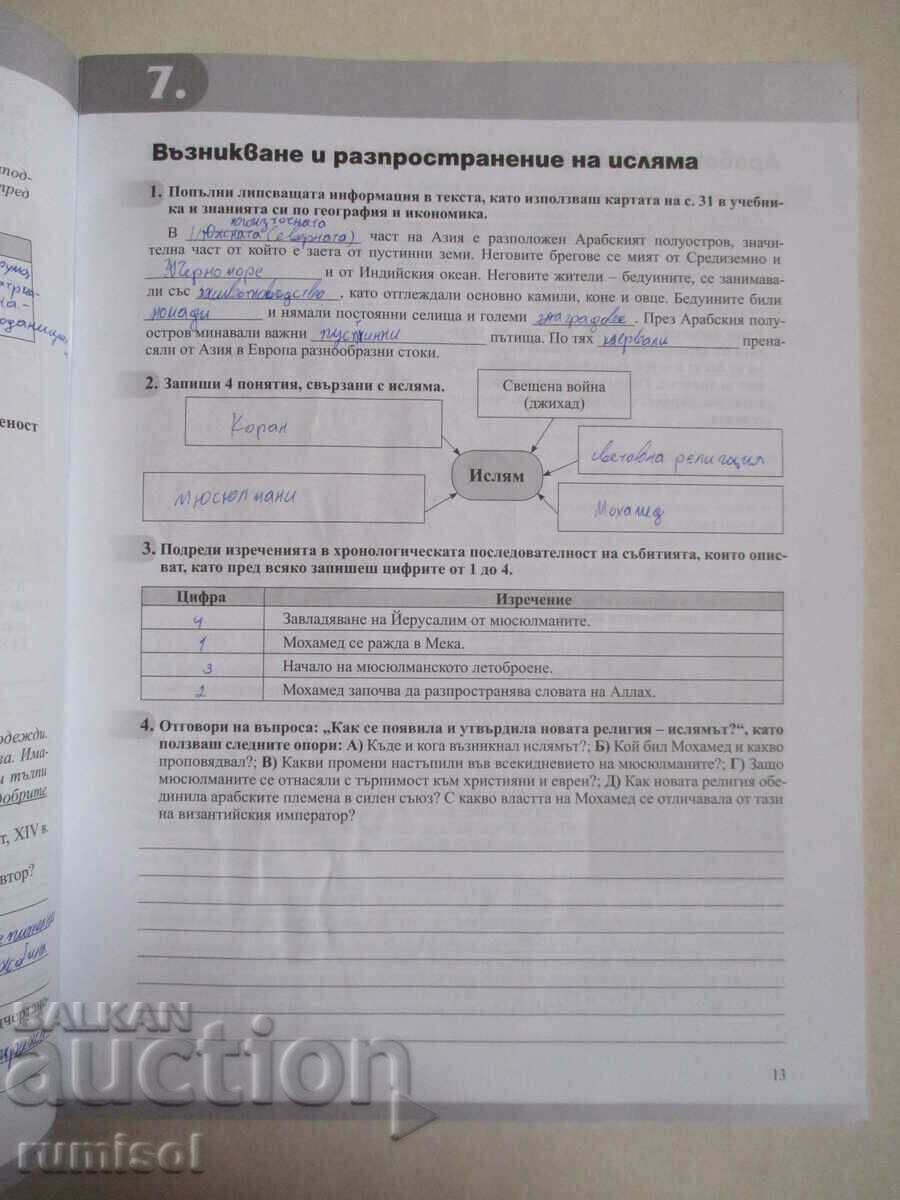 7.
Възникване и разпространение на исляма
1. Попълни липсващата информация в текста, като използваш картата на с. 31 в учебни-
ка и знанията си по география и икономика.
югоизточната
В Южната (северната) част на Азия е разположен Арабският полуостров, значи-
телна част от който е заета от пустинни земи. Неговите брегове се мият от Средиземно и
Черно море и от Индийския океан. Неговите жители – бедуините, се занимава-
ли със животновъдство, като отглеждали основно камили, коне и овце. Бедуините били
номади и нямали постоянни селища и големи градове. През Арабския полу-
остров минавали важни пустинни пътища. По тях кервали прена-
сяли от Азия в Европа разнообразни стоки.
2. Запиши 4 понятия, свързани с исляма.
Свещена война
(джихад)
Коран
световна религия
Ислям
мюсюлмани
Мохамед
3. Подреди изреченията в хронологическата последователност на събитията, които опис-
ват, като пред всяко запишеш цифрите от 1 до 4.
Цифра Изречение
4 Завладяване на Йерусалим от мюсюлманите.
1 Мохамед се ражда в Мека.
3 Начало на мюсюлманското летоброене.
2 Мохамед започва да разпространява словата на Аллах.
4. Отговори на въпроса: „Как се появила и утвърдила новата религия – ислямът?“, като
ползваш следните опори: А) Къде и кога възникнал ислямът?; Б) Кой бил Мохамед и какво
проповядвал?; В) Какви промени настъпили във всекидневието на мюсюлманите?; Г) Защо
мюсюлманите се отнасяли с търпимост към християни и евреи?; Д) Как новата религия обе-
динила арабските племена в силен съюз? С какво властта на Мохамед се отличавала от тази
на византийския император?
13
еност
одежди.
ва. Има-
и тълпи
добрите
т, XIV в.
втор?
BALKAN
auction
rumisol